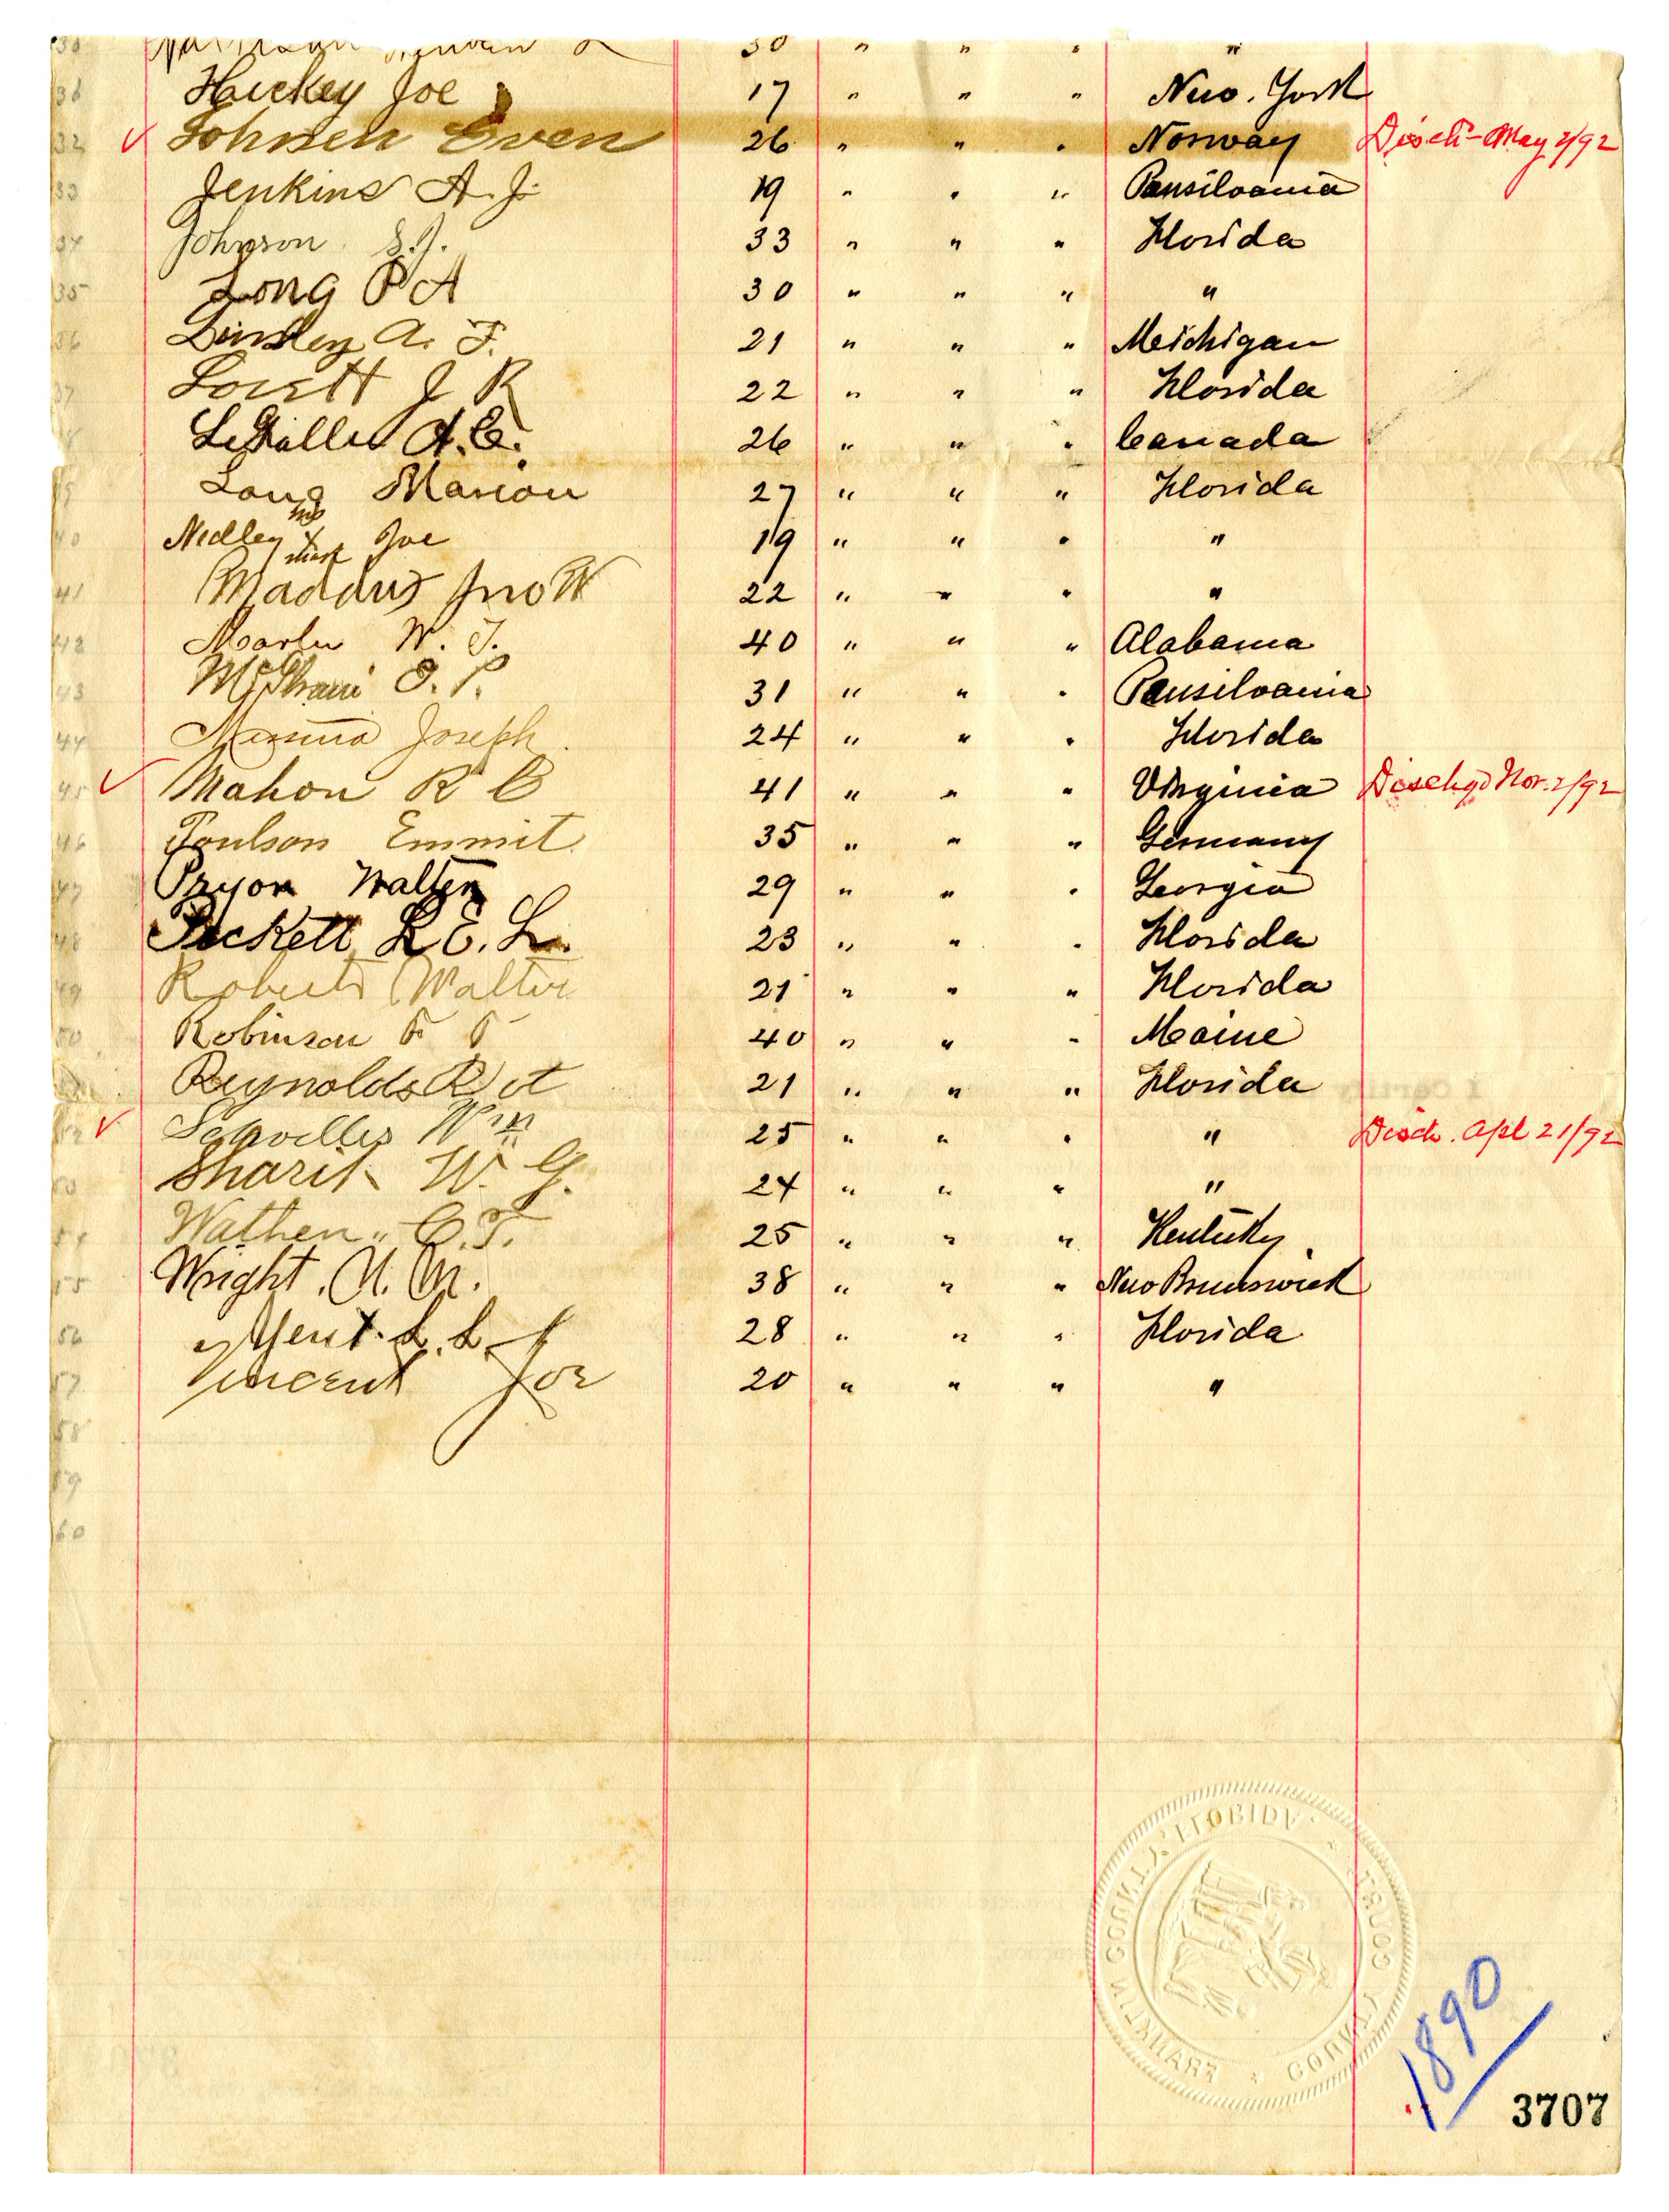 30 " " " "
36 Hickey Joe 17 " " " New. York
32 ✓ Johnsen Even 26 " " " Norway Disch May 2/92
33 Jenkins A. J. 19 " " " Pensilvania
34 Johnson S. J. 33 " " " Florida
35 Long P A 30 " " " "
36 Linsley A. F. 21 " " " Meichigan
37 Lovett J R 22 " " " Florida
38 A. C. 26 " " " Canada
39 Long Marion 27 " " " Florida
his
40 Nedley x Joe 19 " " " "
mark
41 Maddux Jno W 22 " " " "
42 W. T. 40 " " " Alabama
43 31 " " " Pensilvania
44 Joseph 24 " " " Florida
45 ✓ Mahon R C 41 " " " Virginia Dischgd Nov. 2/92
46 Poulson Emmit 35 " " " Germany
47 Pryor Walter 29 " " " Georgia
48 Puckett L. E. L. 23 " " " Florida
49 Roberts Walter 21 " " " Florida
50 Robinson F F 40 " " " Maine
Reynolds R 21 " " " Florida
52 ✓ Wm 25 " " " " Disch. Apl 21/92
Sharit W. G. 24 " " " "
54 Wathen " C. T. 25 " " " Kentucky
55 Wright. 38 " " " New Brunswick
56 Yent. L. L. 28 " " " Florida
57 Vincent Joe 20 " " " "
58
59
60
COUNTY COURT FRANKLIN COUNTY, FLORIDA
1890
3707